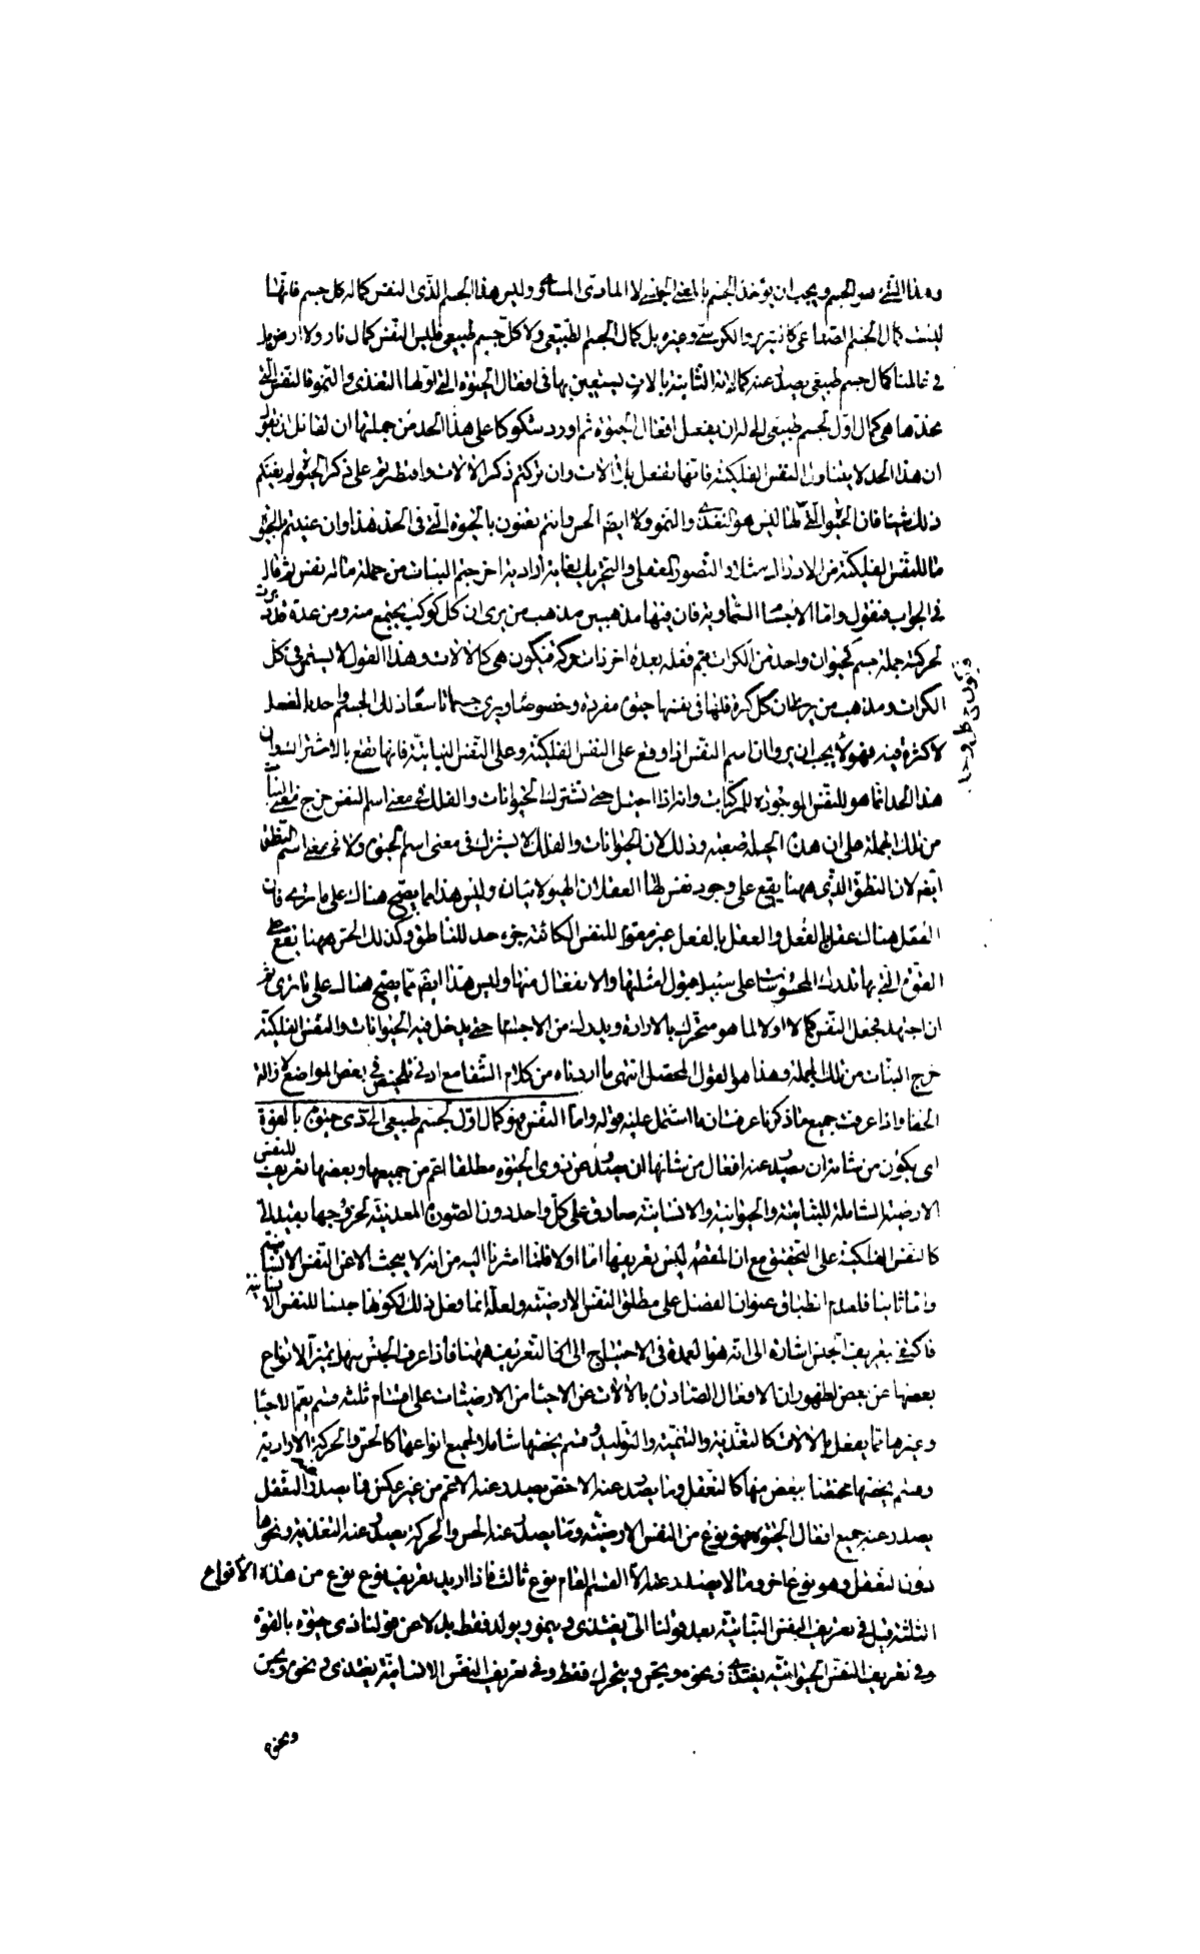 وهذا الشئ هو الجسم ويجب ان يؤخذ الجسم بالمعنى الجنسي لا المادى وليس هذا الجسم الذى النفس كماله كل جسم فانها
ليست كمال الجسم الصناعى كالسرير والكرسى وغيره بل كمال الجسم الطبيعى ولا كل جسم طبيعى فليس النفس كمال نار ولا ارض بل
فى عالمنا كمال جسم طبيعى يصدر عنه كمالاته الثانية بالات يستعين بها فى افعال الحيوة التى اولها التغذى والنمو فالنفس التى
نحدها هى كمال اول لجسم طبيعى الى له ان يفعل افعال الحيوة ثم اورد شكوكا على هذا الحد من جملتها ان لقائل ان يقول
ان هذا الحد لا يتناول النفس الفلكية فانها تفعل بلا الات وان تركتم ذكر الالات واقتصرتم على ذكر الحيوة لم يغنكم
ذلك شيئا فان الحيوة التى لها ليس هو التغذى والنمو ولا ايضا الحس وانتم تعنون بالحيوة التى فى الحد هذا وان عنيتم بالحيوة
ما للنفس الفلكية من الادراك مثلا والتصور العقلى والتحريك لغاية ارادية اخرجتم النبات من جملة ما له نفس ثم قال
فى الجواب فنقول واما الاجسام السماوية فان فيها مذهبين مذهب من يرى ان كل كوكب يجتمع منه ومن عدة كرات قد دبرت
بحركته جملة جسم كحيوان واحد من الكرات يتم فعله بعدة اجزاء ذات حركة فيكون هى كالالات وهذا القول لا يستمر فى كل
الكرات ومذهب من يرى ان كل كرة فلها فى نفسها حيوة مفردة وخصوصا ويرى جسما تاسعا ذلك الجسم واحد بالفعل
لا كثرة فيه فهولاء يجب ان يروا ان اسم النفس اذا وقع على النفس الفلكية وعلى النفس النباتية فانما يقع بالاشتراك وان
هذا الحد انما هو للنفس الموجودة للمركبات وانه اذا احتيل حتى تشترك الحيوانات والفلك فى معنى اسم النفس خرج معنى النبات
من تلك الجملة على ان هذه الحيلة صعبة وذلك لان الحيوانات والفلك لا يشترك فى معنى اسم الحيوة ولا فى معنى اسم النطق
ايضا لان النطق الذى ههنا يقع على وجود نفس لها العقلان الهيولانيان وليس هذا مما يصح هناك على ما ترى فان
العقل هناك عقل بالفعل والعقل بالفعل غير مقوم للنفس الكائنة جزء حد للناطق وكذلك الحس ههنا يقع على
القوة التى بها تدرك المحسوسات على سبيل قبول امثلتها والانفعال منها وليس هذا ايضا مما يصح هناك على ما ترى ثم
ان اجتهد فجعل النفس كمالا اولا لما هو متحرك بالارادة ويدرك من الاجسام حتى يدخل فيه الحيوانات والنفس الفلكية
خرج النبات من تلك الجملة وهذا هو القول المحصل انتهى ما اردناه من كلام الشفا مع ادنى تلخيص فى بعض المواضع لازالة
الخفا واذا عرفت جميع ما ذكرنا عرفت ان ما اشتمل عليه قوله واما النفس فهو كمال اول لجسم طبيعى الى ذى حيوة بالقوة
اى يكون من شانه ان يصدر عنه افعال من شانها ان يصدر عن ذوى الحيوة مطلقا اعم من جميعها وبعضها تعريف للنفس
الارضية الشاملة للنباتية والحيوانية والانسانية صادق على كل واحد دون الصورة المعدنية لخروجها بقيد الى
كالنفس الفلكية على التحقيق مع ان المقصود ليس تعريفها اما اولا فلما اشرنا اليه من انه لا يبحث الا عن النفس الانسانية
واما ثانيا فلعدم انطباق عنوان الفصل على مطلق النفس الارضية ولعله انما فعل ذلك لكونها جنسا للنفس الانسانية
فاكتفى بتعريف الجنس اشارة الى انه هو العمدة فى الاحتياج الى التعريف ههنا فاذا عرف الجنس سهل تميز الانواع
بعضها عن بعض لظهور ان الافعال الصادرة بالالات عن الاجسام من الارضيات على اقسام ثلثة قسم يعم الاجسام
وغيرها مما يفعل بالالات كالتغذية والتنمية والتوليد وقسم يخصها شاملا لجميع انواعها كالحس والحركة الارادية
وقسم يخصها مختصا ببعض منها كالتعقل وما يصدر عنه الاخص يصدر عنه الاعم من غير عكس فما يصدر عنه التعقل
يصدر عنه جميع افعال الحيوة فهو نوع من النفس الارضية وما يصدر عنه الحس والحركة يصدر عنه التغذية ونحوها
دون التعقل وهو نوع اخر وما لا يصدر عنه الا القسم العام نوع ثالث فاذا اريد تعريف نوع نوع من هذه الانواع
الثلثة قيل فى تعريف النفس النباتية بعد قولنا الى يغتذى وينمو ويولد فقط بدلا عن قولنا ذى حيوة بالقوة
وفى تعريف النفس الحيوانية يغتذى ونحوه ويحس ويتحرك فقط وفى تعريف النفس الانسانية يغتذى ونحوه ويحس
ونحوه